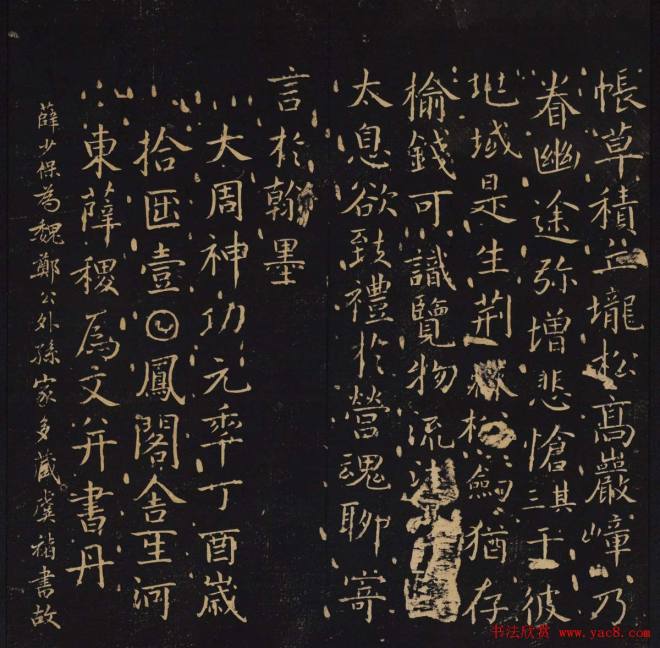 帳草積丘壠松高巖嶂乃
眷幽途弥增悲愴其三𡈼彼
地域是生荆 劒猶存
榆錢可識覽物流
太息欲致禮於營魂聊寄
言於翰墨
大周神功元𠡦丁酉歲
拾𠥱壹〇鳳閣舍生河
東薛稷爲文并書丹
薛少保為魏鄭公外孫家多藏虞褚書故
书法欣赏 www.yac8.com